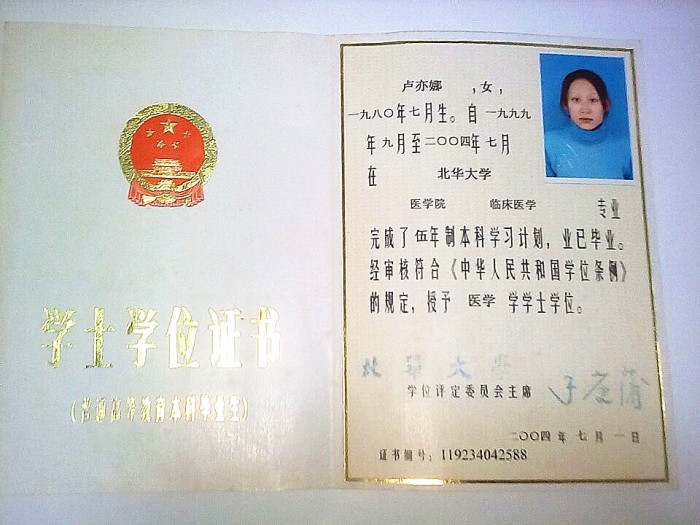 学士学位证书
(普通高等教育本科毕业生)
卢亦娜 ,女,
一九八〇年七月生。自一九九九
年九月至二〇〇四年七月
在 北华大学
医学院 临床医学 专业
完成了伍年制本科学习计划,业已毕业。
经审核符合《中华人民共和国学位条例》
的规定,授予 医学 学学士学位。
北华大学
学位评定委员会主席
二〇〇四年七月一日
证书编号:119234042588